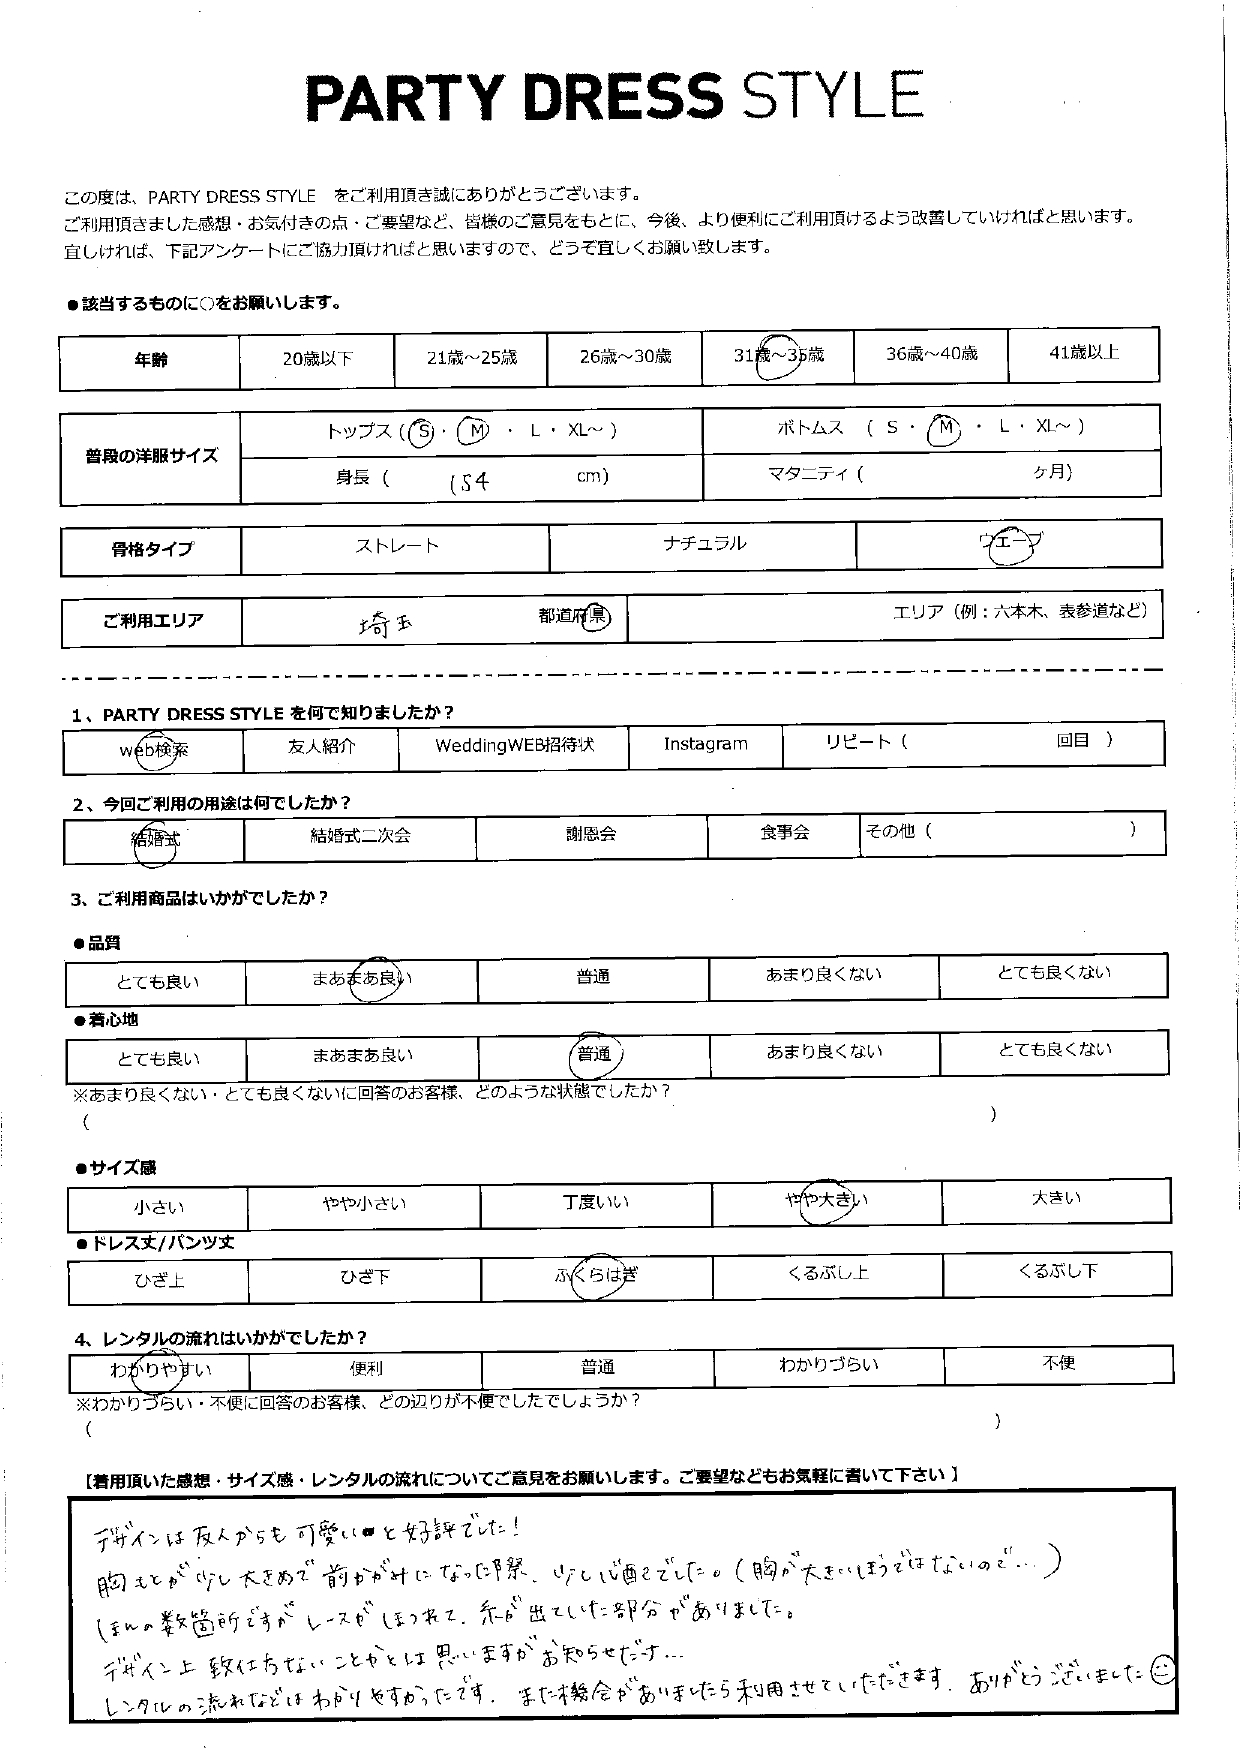 PARTY DRESS STYLE
この度は、PARTY DRESS STYLE をご利用頂き誠にありがとうございます。
ご利用頂きました感想・お気付きの点・ご要望など、皆様のご意見をもとに、今後、より便利にご利用頂けるよう改善していければと思います。
宜しければ、下記アンケートにご協力頂ければと思いますので、どうぞ宜しくお願い致します。
●該当するものに○をお願いします。
年齢 20歳以下 21歳～25歳 26歳～30歳 31歳～35歳 36歳～40歳 41歳以上
普段の洋服サイズ トップス (S・M ・ L ・ XL～ ) ボトムス ( S ・ M ・ L ・ XL～ )
身長 ( 154 cm) マタニティ ( ケ月)
骨格タイプ ストレート ナチュラル ウエーブ
ご利用エリア 埼玉 都道府県 エリア (例：六本木、表参道など)
1、PARTY DRESS STYLE を何で知りましたか？
web検索 友人紹介 WeddingWEB招待状 Instagram リピート ( 回目 )
2、今回ご利用の用途は何でしたか？
結婚式 結婚式二次会 謝恩会 食事会 その他 ( )
3、ご利用商品はいかがでしたか？
●品質
とても良い まあまあ良い 普通 あまり良くない とても良くない
●着心地
とても良い まあまあ良い 普通 あまり良くない とても良くない
※あまり良くない・とても良くないに回答のお客様、どのような状態でしたか？
( )
●サイズ感
小さい やや小さい 丁度いい やや大きい 大きい
●ドレス丈/パンツ丈
ひざ上 ひざ下 ふくらはぎ くるぶし上 くるぶし下
4、レンタルの流れはいかがでしたか？
わかりやすい 便利 普通 わかりづらい 不便
※わかりづらい・不便に回答のお客様、どの辺りが不便でしたでしょうか？
( )
【着用頂いた感想・サイズ感・レンタルの流れについてご意見をお願いします。ご要望などもお気軽に書いて下さい】
デザインは友人からも可愛いと好評でした！
胸もとが少し大きめで前かがみになった際、少し心配でした。(胸が大きいほうではないので…)
ほんの数箇所ですがレースがほつれて、糸が出ていた部分がありました。
デザイン上致仕方ないことかとは思いますがお知らせだけ…
レンタルの流れなどはわかりやすかったです。また機会がありましたら利用させていただきます。ありがとうございました